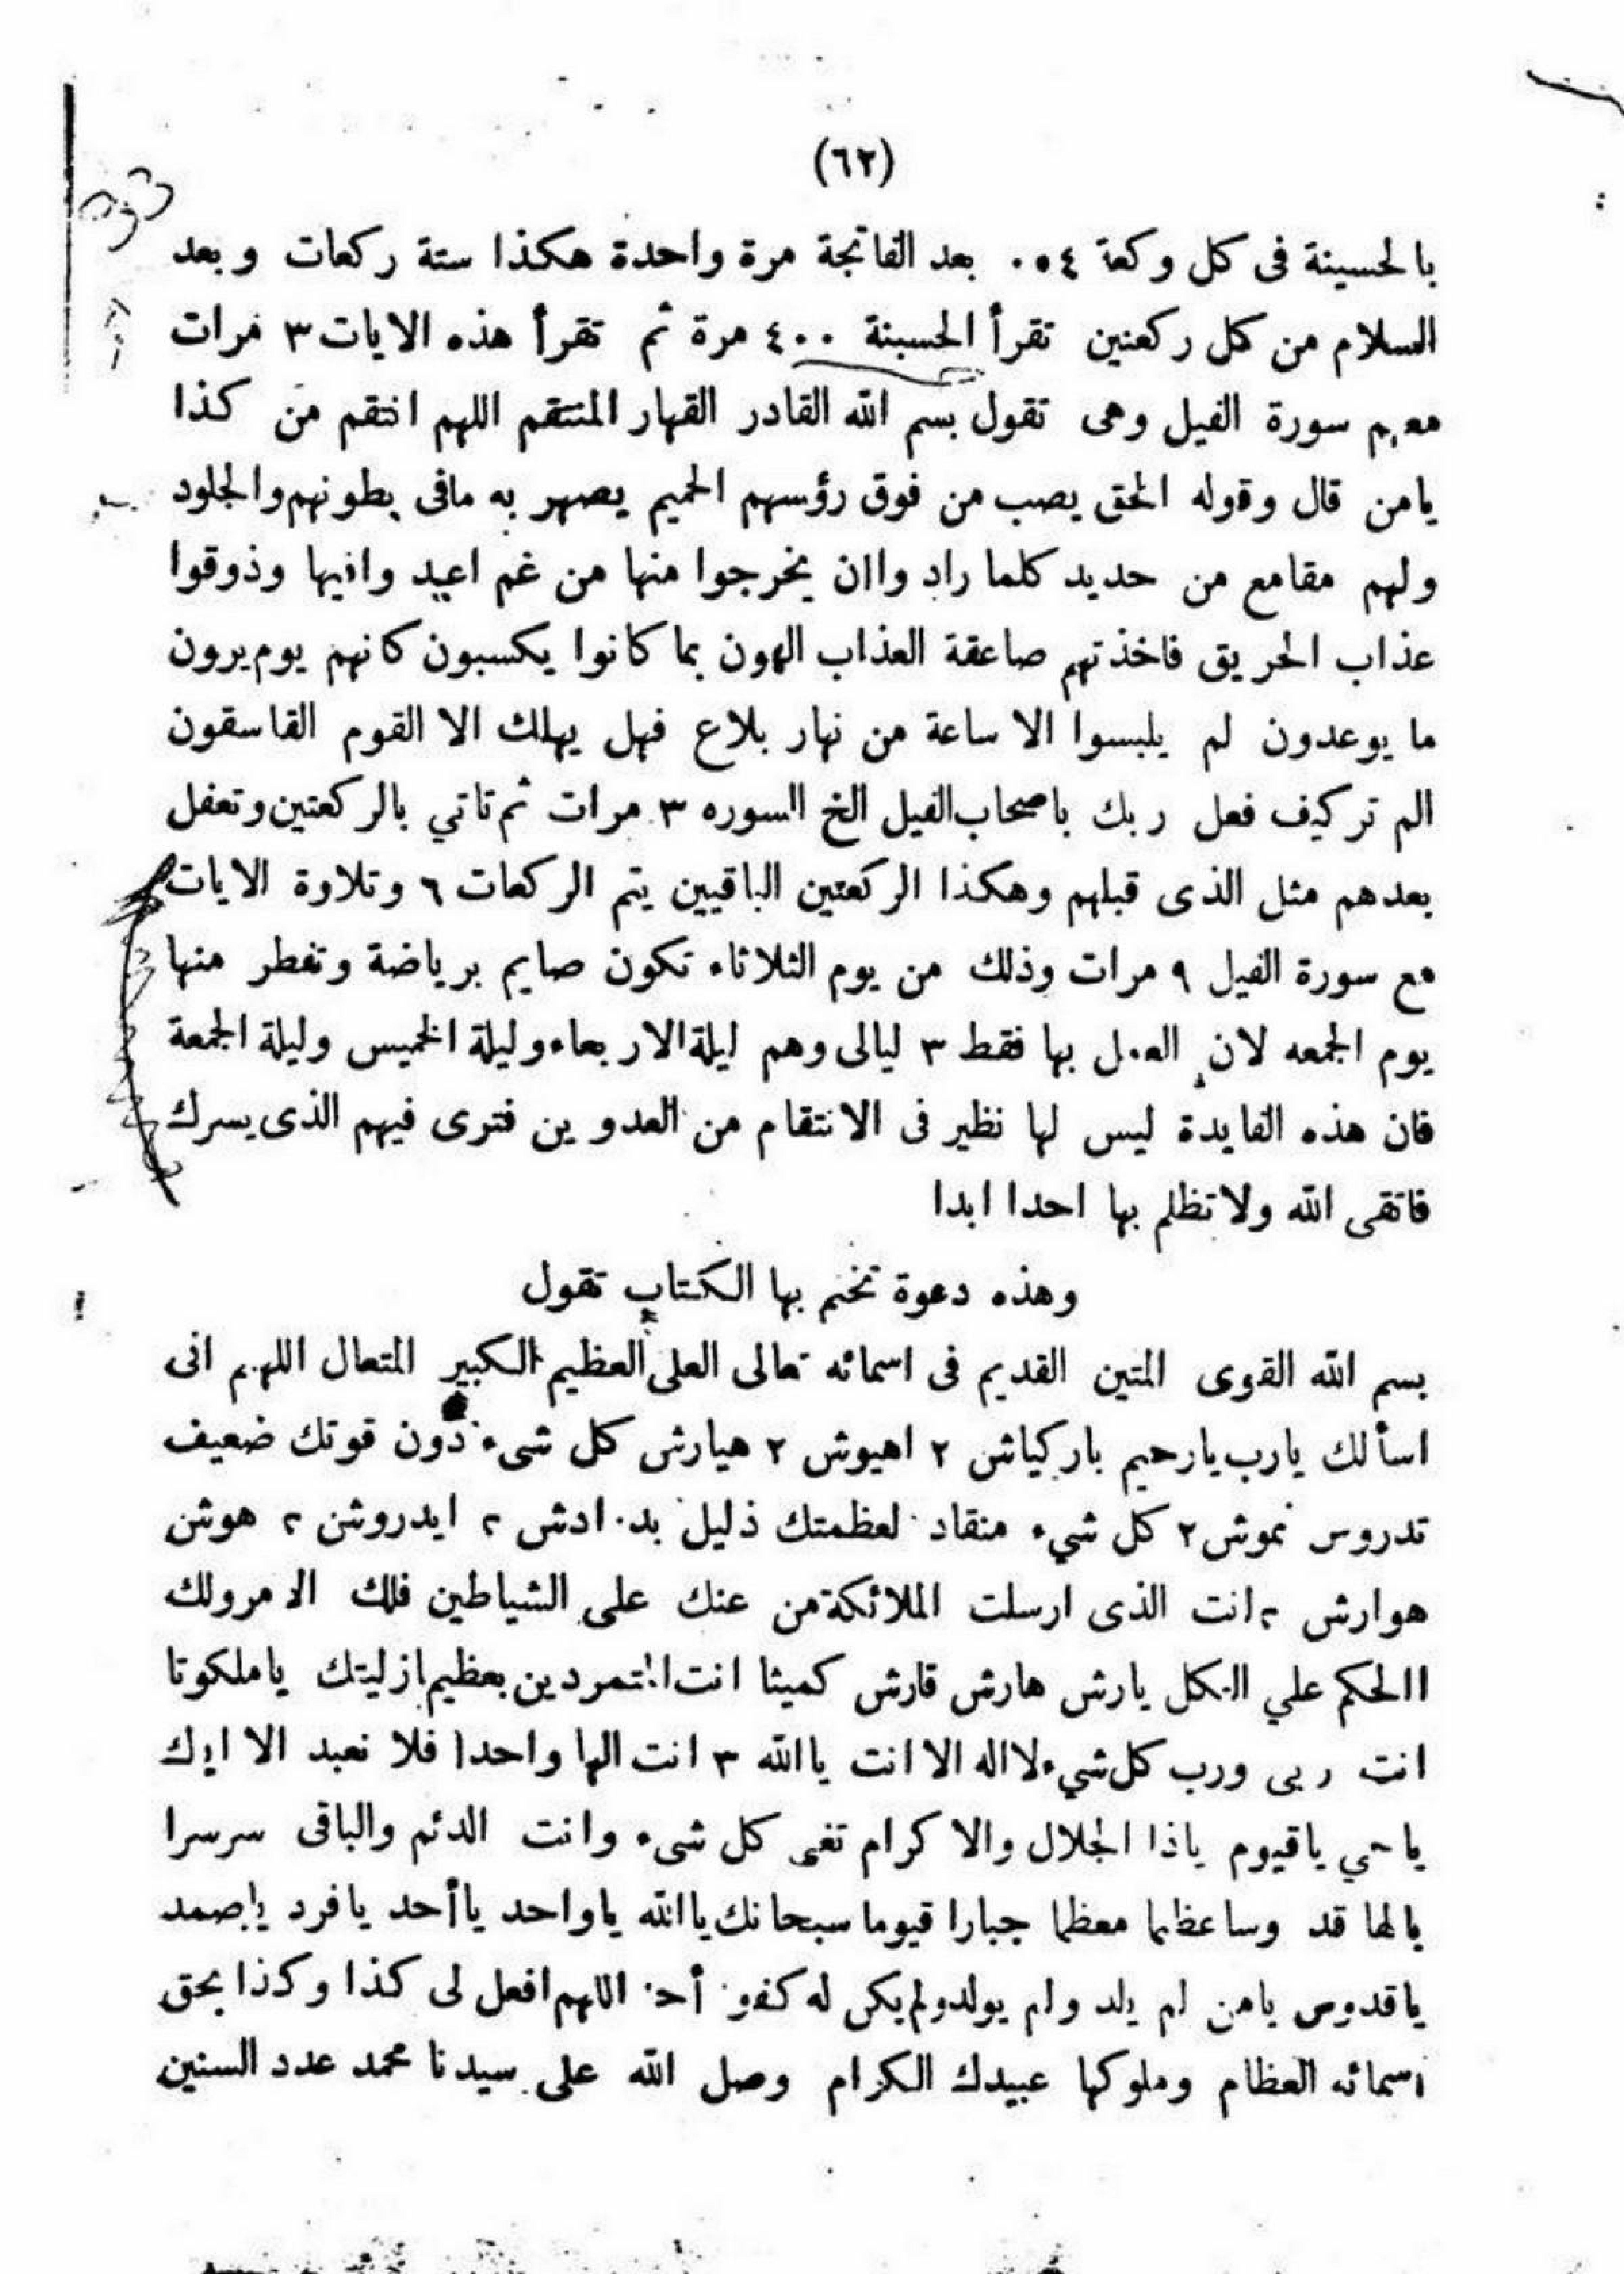 (٦٢)
بالحسينة فى كل وكعة ٤ ٥٠ بعد الفاتحة مرة واحدة هكذا ستة ركعات وبعد
السلام من كل ركعنين تقرأ الحسبنة ٤٠٠ مرة ثم تقرأ هذه الايات ٣ مرات
سورة الفيل وهى تقول بسم الله القادر القهار المنتقم اللهم انتقم من كذا
يامن قال وقوله الحق يصب من فوق رؤسهم الحميم يصهر به مافى بطونهم والجلود
ولهم مقامع من حديد كلما رادوا ان يخرجوا منها من غم اعيدوافيها وذوقوا
عذاب الحريق فاخذتهم صاعقة العذاب الهون بما كانوا يكسبون كانهم يوم يرون
ما يوعدون لم يلبسوا الا ساعة من نهار بلاع فهل يهلك الا القوم القاسقون
الم تر كيف فعل ربك باصحاب الفيل الخ السوره ٣ مرات ثم تاتي بالركعتين وتعفل
بعدهم مثل الذى قبلهم وهكذا الركعتين الباقيين يتم الركعات ٦ وتلاوة الايات
مع سورة الفيل ٩ مرات وذلك من يوم الثلاثاء تكون صايم برياضة وتفطر منها
يوم الجمعه لان العمل بها فقط ٣ ليالى وهم ليلة الاربعاء وليلة الخميس وليلة الجمعة
فان هذه الفايدة ليس لها نظير فى الانتقام من العدوين فترى فيهم الذى يسرك
فاتقى الله ولا تظلم بها احدا ابدا
وهذه دعوة تختم بها الكتاب تقول
بسم الله القوى المتين القديم فى اسمائه تعالى العلى العظيم الكبير المتعال اللهم انى
اسألك يارب يارحيم باركياش ٢ اهيوش ٢ هيارش كل شىء دون قوتك ضعيف
تدروس نموش ٢ كل شيء منقاد لعظمتك ذليل ادش ٢ ايدروش ٢ هوش
هوارش ٢ انت الذى ارسلت الملائكة من عنك على الشياطين فلك الامرولك
االحكم علي الكل يارش هارش قارش كميثا انت المتمردين بعظيم ازليتك ياملكوتا
انت ربى ورب كل شيء لااله الا انت ياالله ٣ انت الها واحدا فلا نعبد الا اياك
ياحي ياقيوم ياذا الجلال والاكرام تغى كل شىء وانت الدئم والباقى سرسرا
يالها قد وسا عظيما معظما جبارا قيوما سبحانك ياالله ياواحد ياأحد يافرد ياصمد
ياقدوس يامن لم يلد ولم يولد ولم يكن له كفو اللهم افعل لى كذا وكذا بحق
اسمائه العظام وملوكها عبيدك الكرام وصل الله على سيدنا محمد عدد السنين